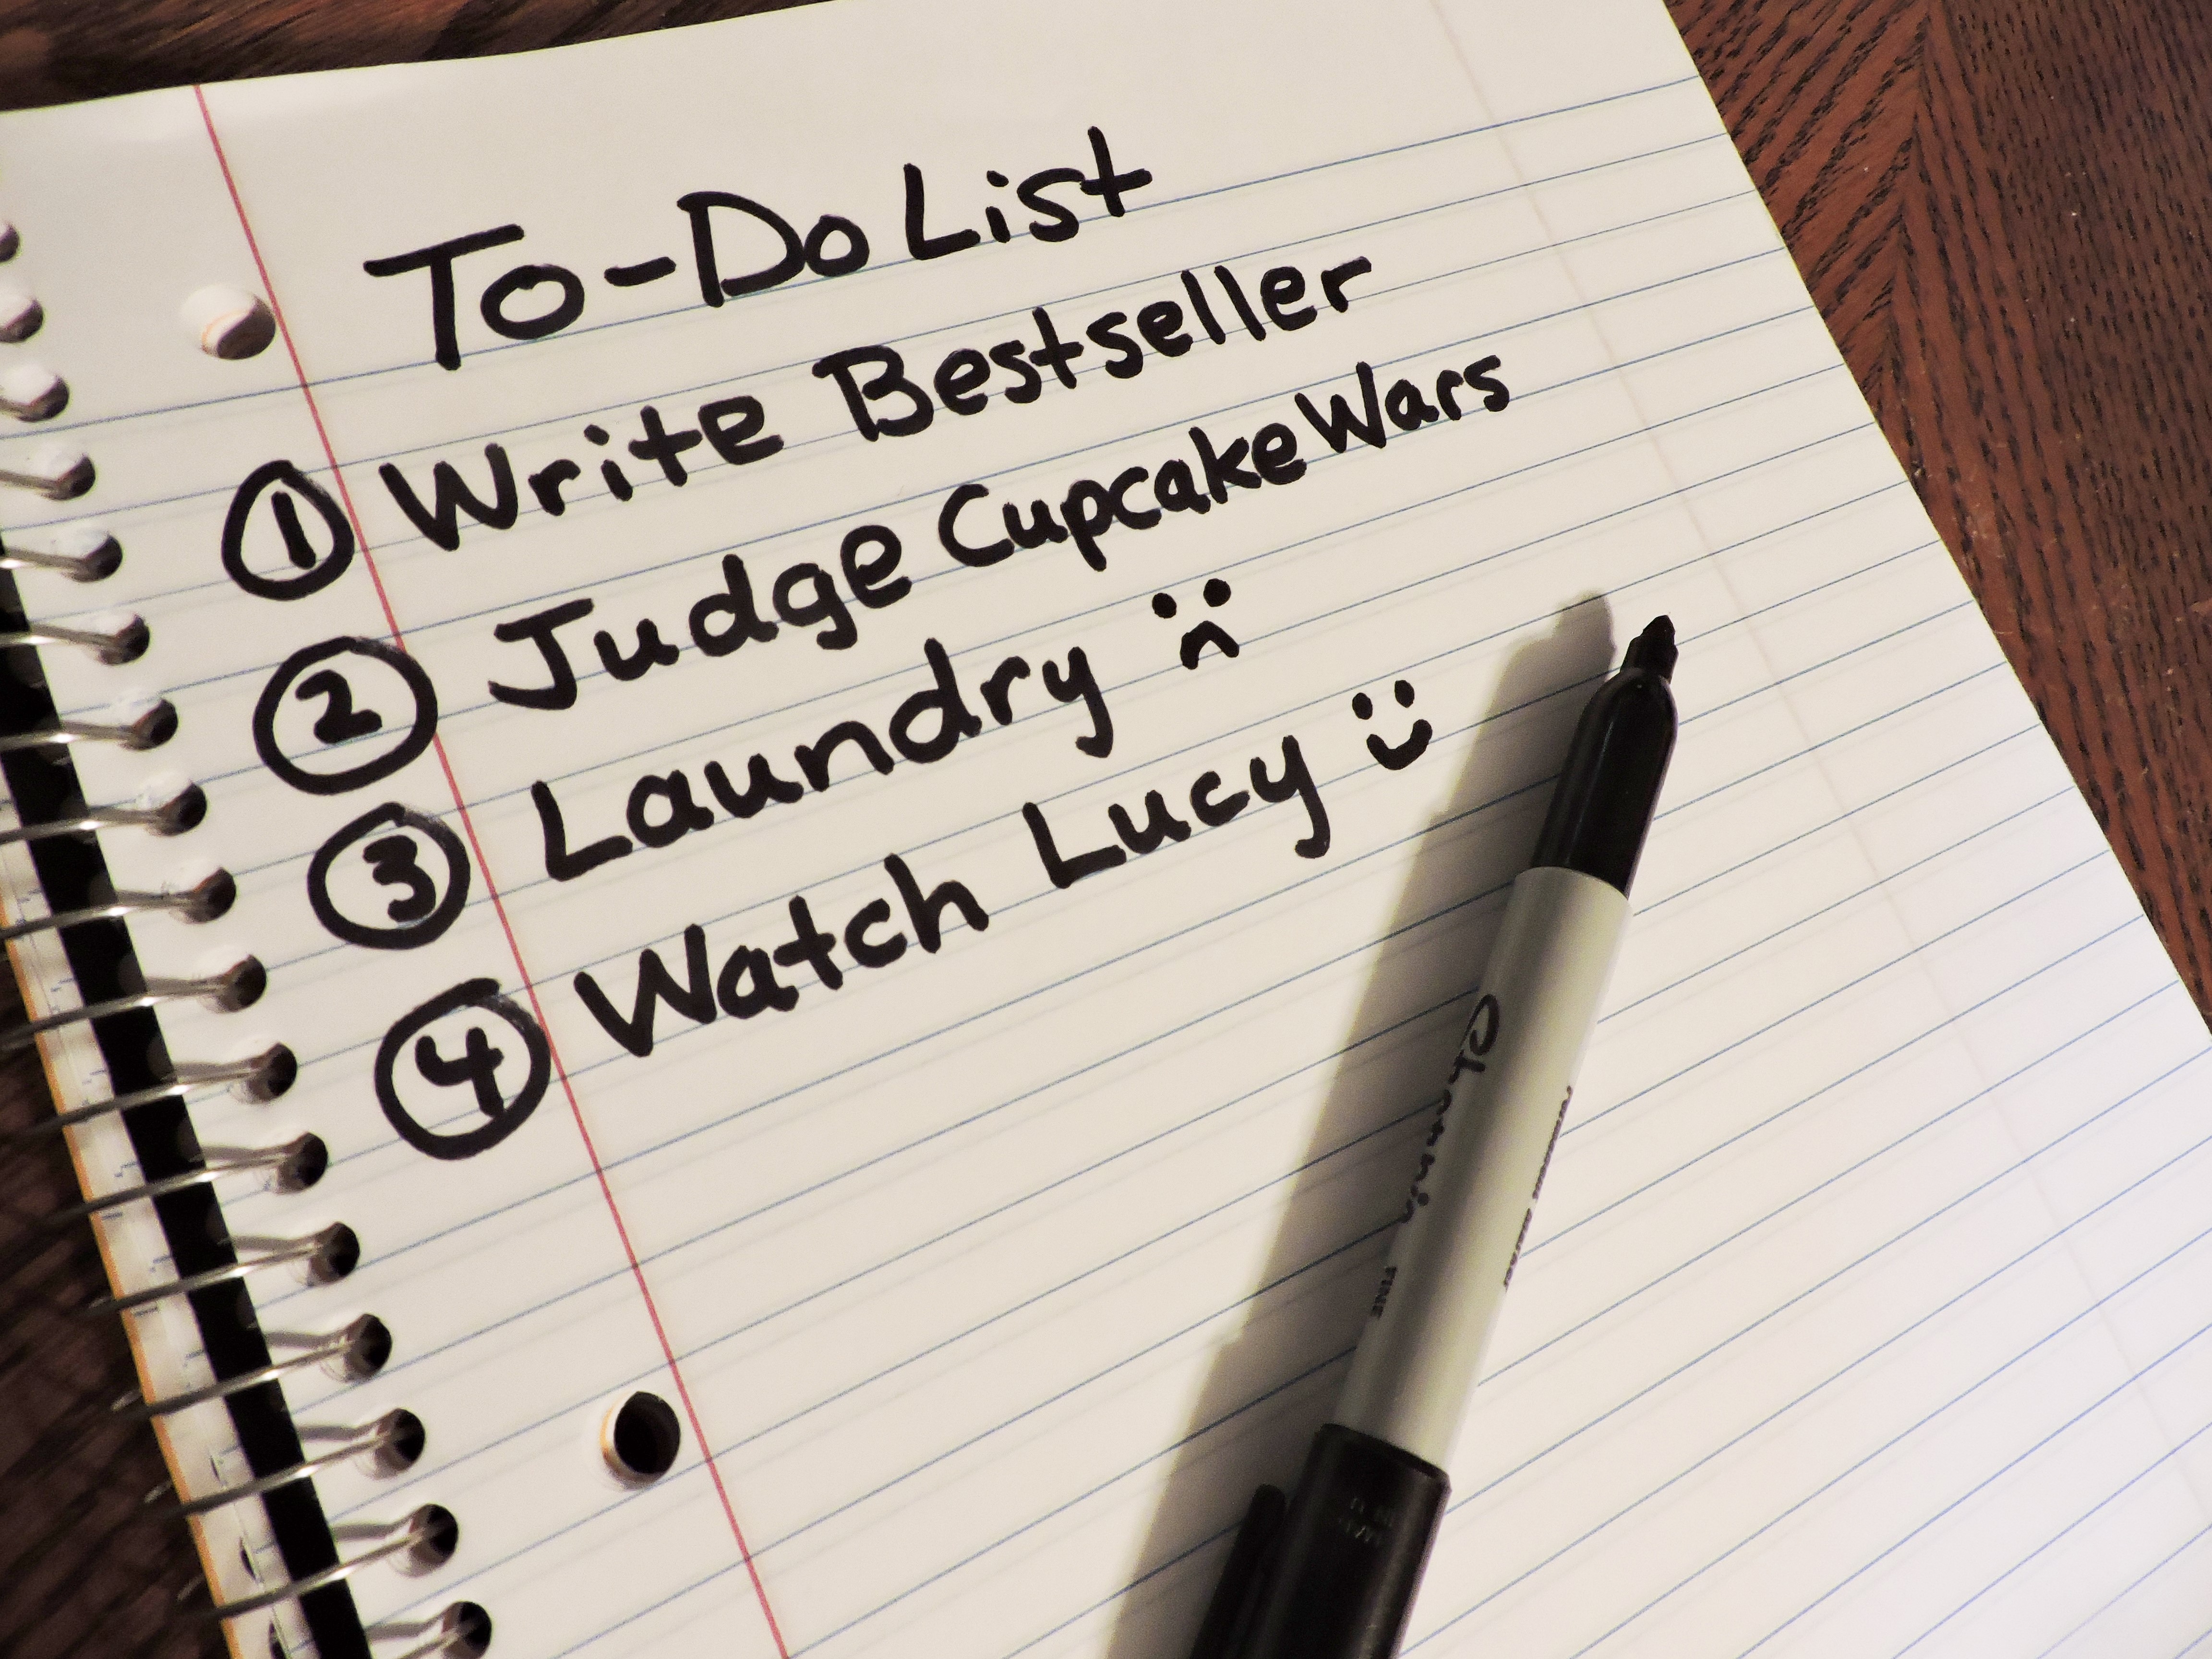 To-Do List
① Write Bestseller
② Judge Cupcake Wars
③ Laundry :(
④ Watch Lucy :)
Sharpie
FINE